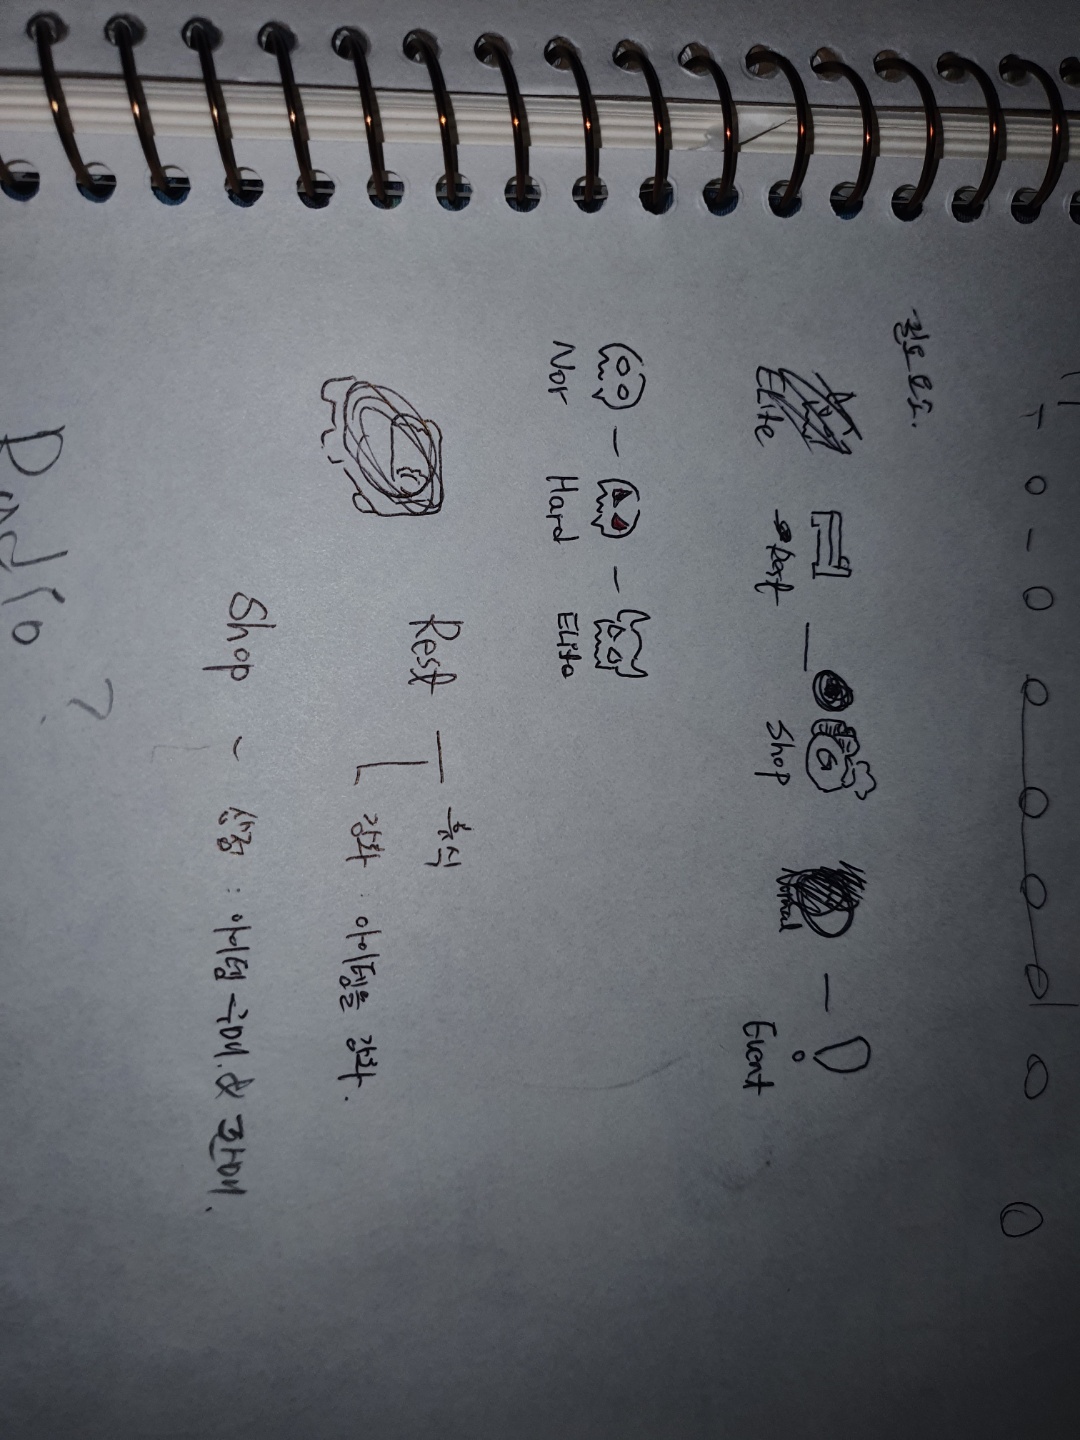 필요 요소.
Elite Rest Shop Normal Event
G
Nor - Hard - Elite
Rest - 휴식
강화 : 아이템을 강화.
Shop - 상점 : 아이템 구매 & 판매.
Radio ?